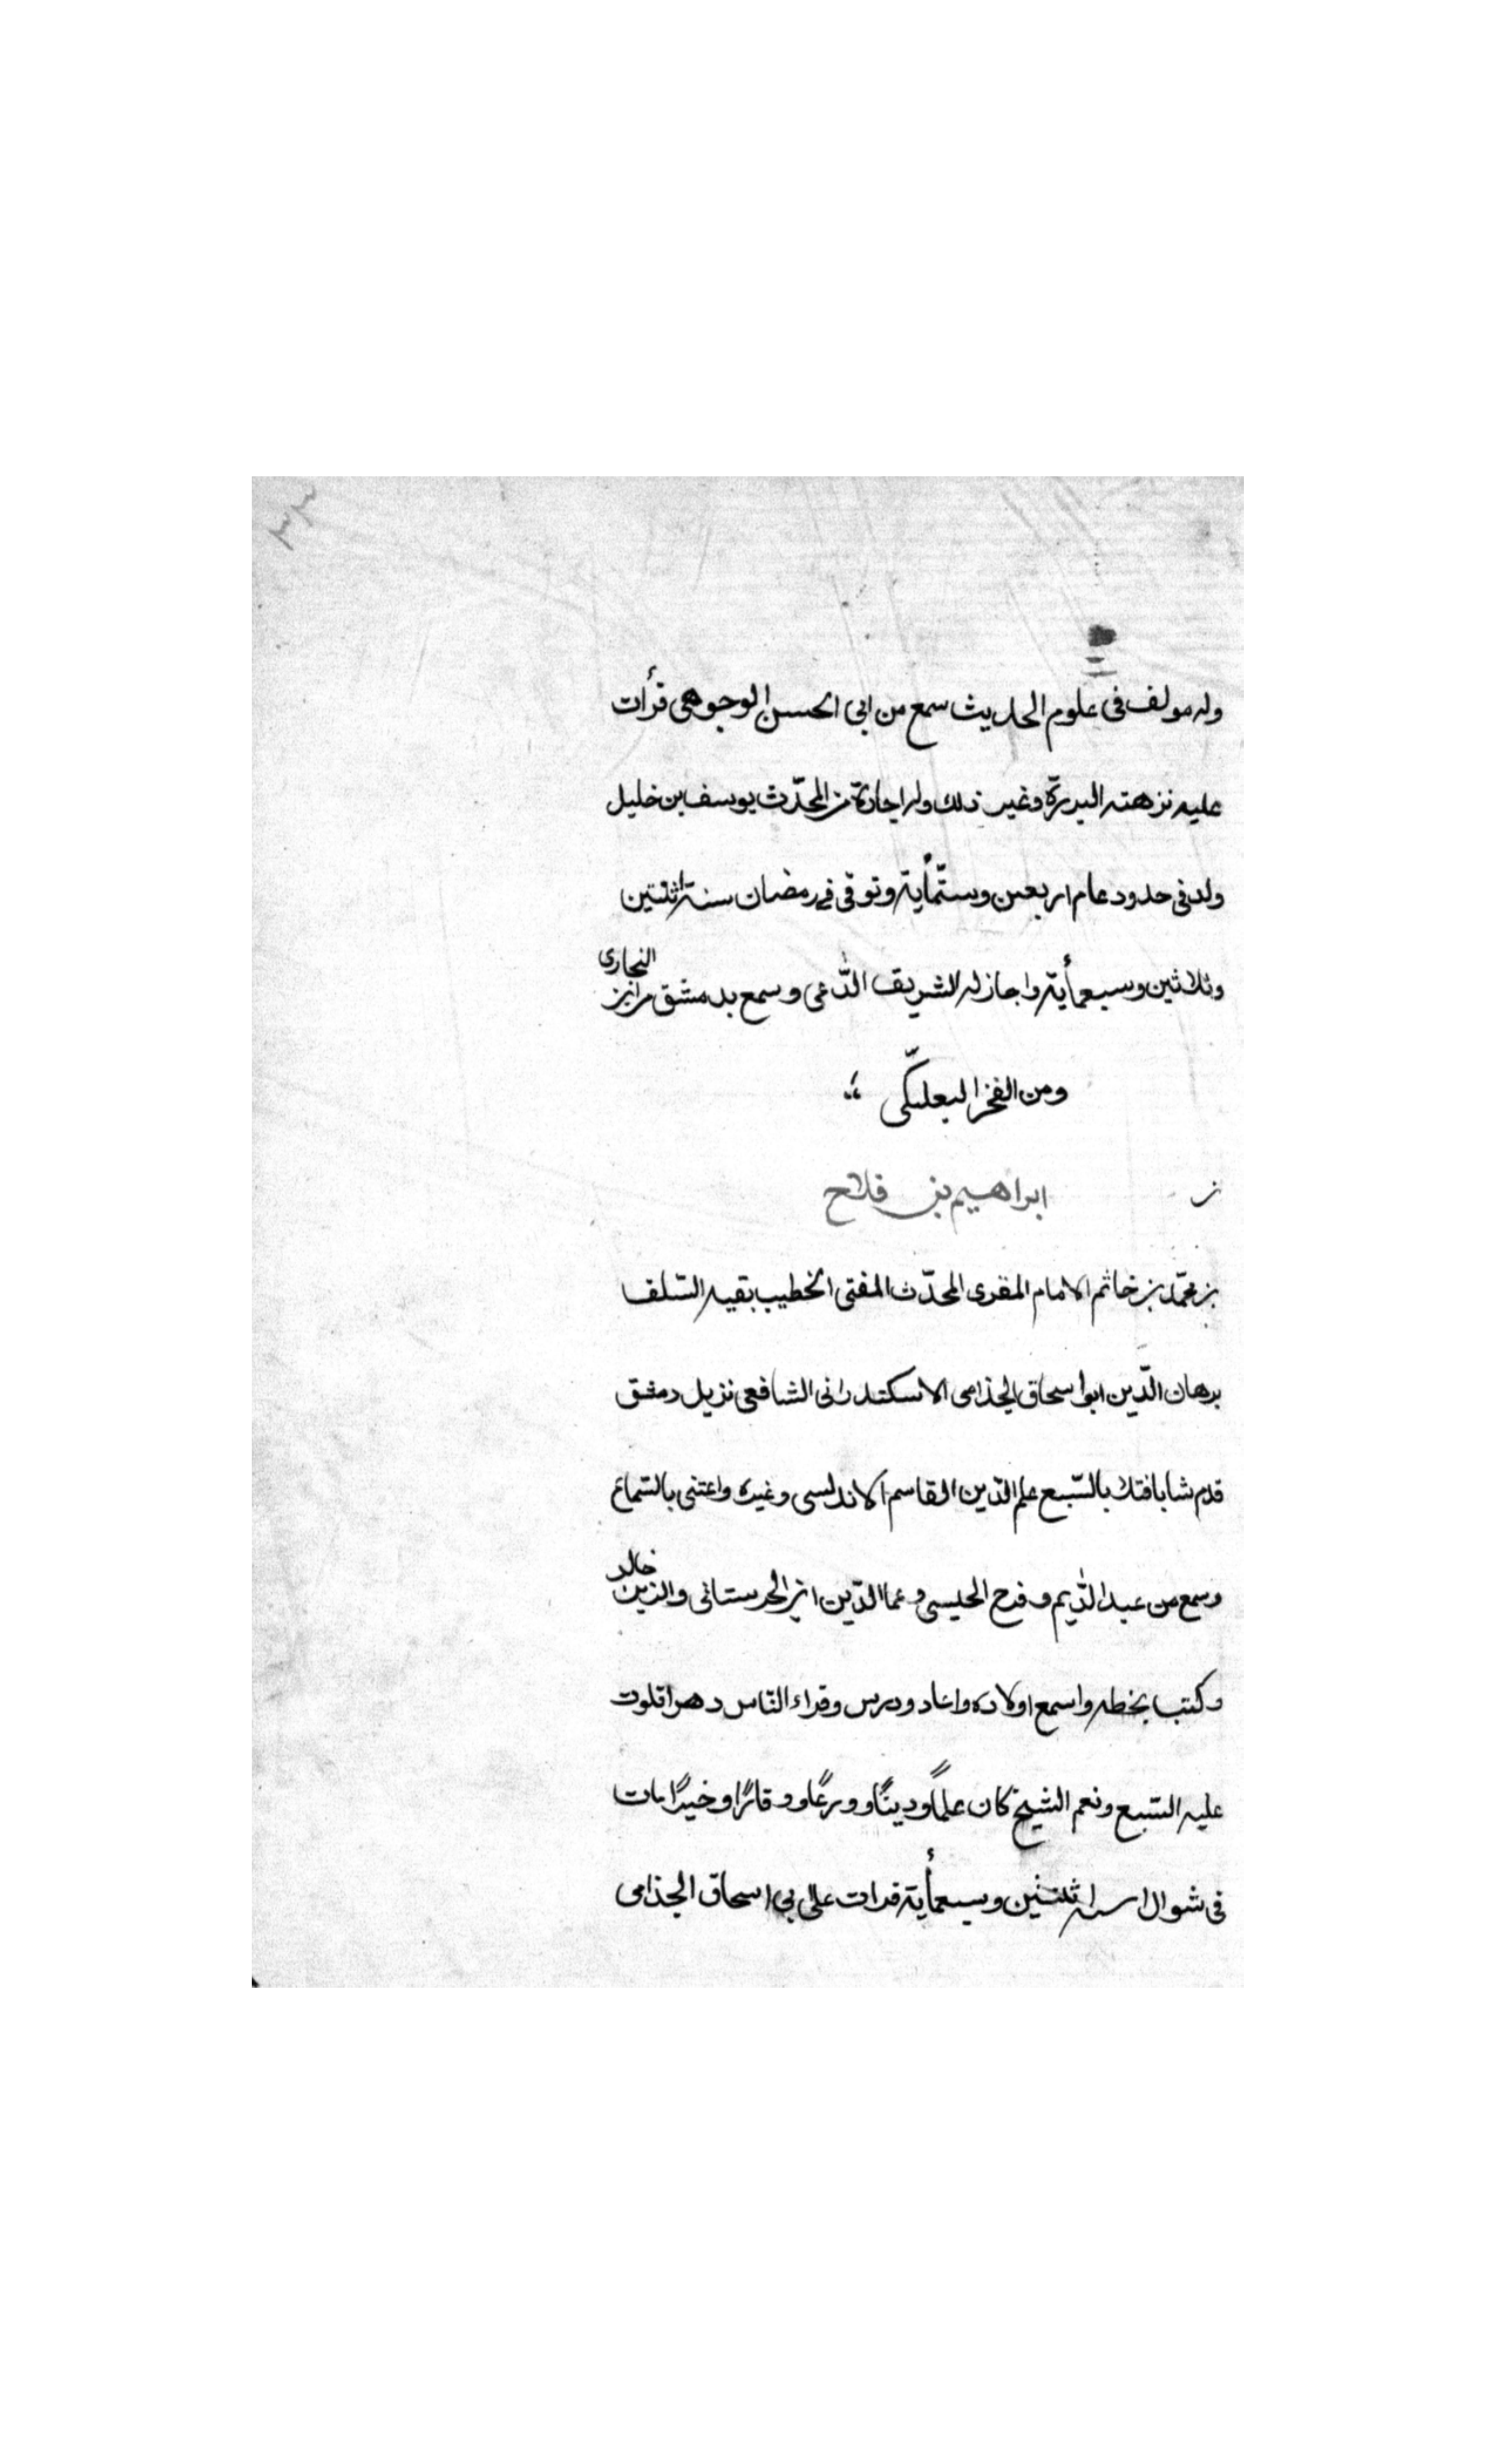 ٣٣
وله مولف فى علوم الحديث سمع من ابى الحسن الوجوهى قرأت
عليه نزهته البررة وغير ذلك وله اجازة من المحدّث يوسف بن خليل
ولد فى حدود عام اربعين وستّمأية وتوفى فى رمضان سنة اثنتين
وثلاثين وسبعمأية واجاز له الشريف الدّاعى وسمع بدمشق من ابن النجارى
ومن الفخر البعلبكّى
ابراهيم بن فلاح
بن محمّد بن خاتم الامام المقرى المحدّث المفتى الخطيب بقيه السّلف
برهان الدّين ابو اسحاق الجذامى الاسكندرانى الشافعى نزيل دمشق
قدم شابا فتلا بالسّبع علم الدّين القاسم الاندلسى وغيره واعتنى بالسّماع
وسمع من عبد الدّايم وفرح الحليسى وعما الدّين ابن الحرستانى والزين خالد
وكتب بخطه واسمع اولاده واعاد ودرس وقراء النّاس دهرا قلوت
عليه السّبع ونعم الشيخ كان علمًا ودينًا وورعًا ووقارًا وخيرًا مات
فى شوال سنه ثلتين وسبعمأية قرات على ابى اسحاق الجذامى